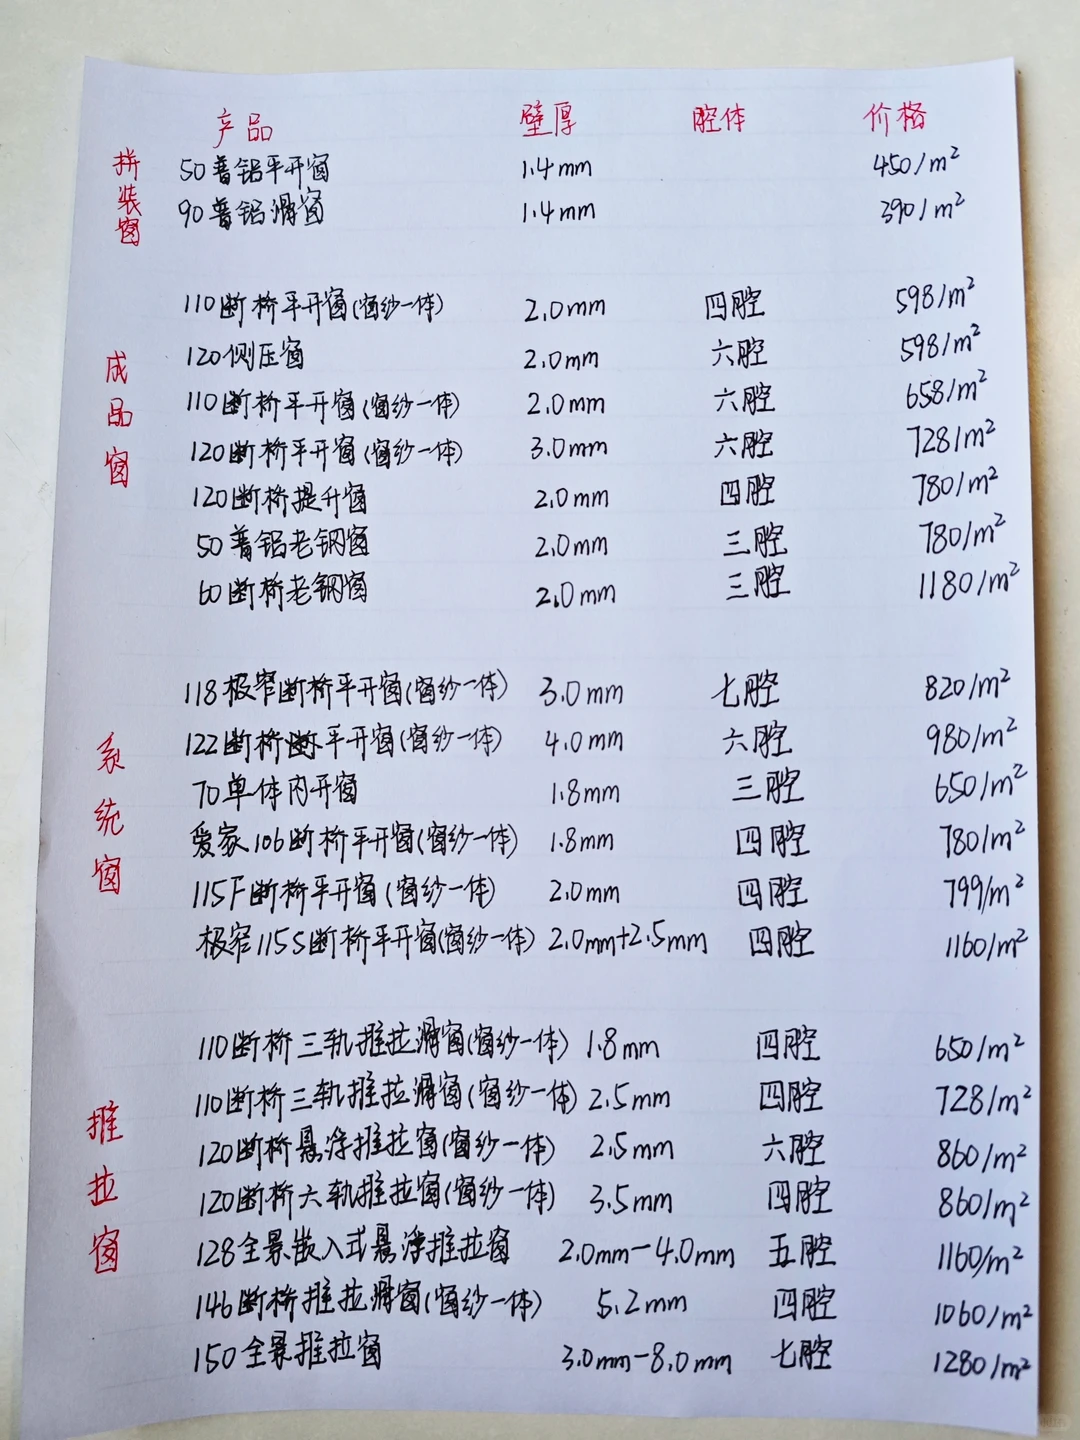 产品 壁厚 腔体 价格
拼装窗
50普铝平开窗 1.4mm 450/m²
90普铝滑窗 1.4mm 390/m²
成品窗
110断桥平开窗(窗纱一体) 2.0mm 四腔 598/m²
120侧压窗 2.0mm 六腔 598/m²
110断桥平开窗(窗纱一体) 2.0mm 六腔 658/m²
120断桥平开窗(窗纱一体) 3.0mm 六腔 728/m²
120断桥提升窗 2.0mm 四腔 780/m²
50普铝老钢窗 2.0mm 三腔 780/m²
60断桥老钢窗 2.0mm 三腔 1180/m²
系统窗
118极窄断桥平开窗(窗纱一体) 3.0mm 七腔 820/m²
122断桥平开窗(窗纱一体) 4.0mm 六腔 980/m²
70单体内开窗 1.8mm 三腔 650/m²
爱家106断桥平开窗(窗纱一体) 1.8mm 四腔 780/m²
115F断桥平开窗(窗纱一体) 2.0mm 四腔 799/m²
极窄115S断桥平开窗(窗纱一体) 2.0mm+2.5mm 四腔 1160/m²
推拉窗
110断桥三轨推拉滑窗(窗纱一体) 1.8mm 四腔 650/m²
110断桥三轨推拉滑窗(窗纱一体) 2.5mm 四腔 728/m²
120断桥悬浮推拉窗(窗纱一体) 2.5mm 六腔 860/m²
120断桥六轨推拉窗(窗纱一体) 3.5mm 四腔 860/m²
128全景嵌入式悬浮推拉窗 2.0mm-4.0mm 五腔 1160/m²
146断桥推拉滑窗(窗纱一体) 5.2mm 四腔 1060/m²
150全景推拉窗 3.0mm-8.0mm 七腔 1280/m²